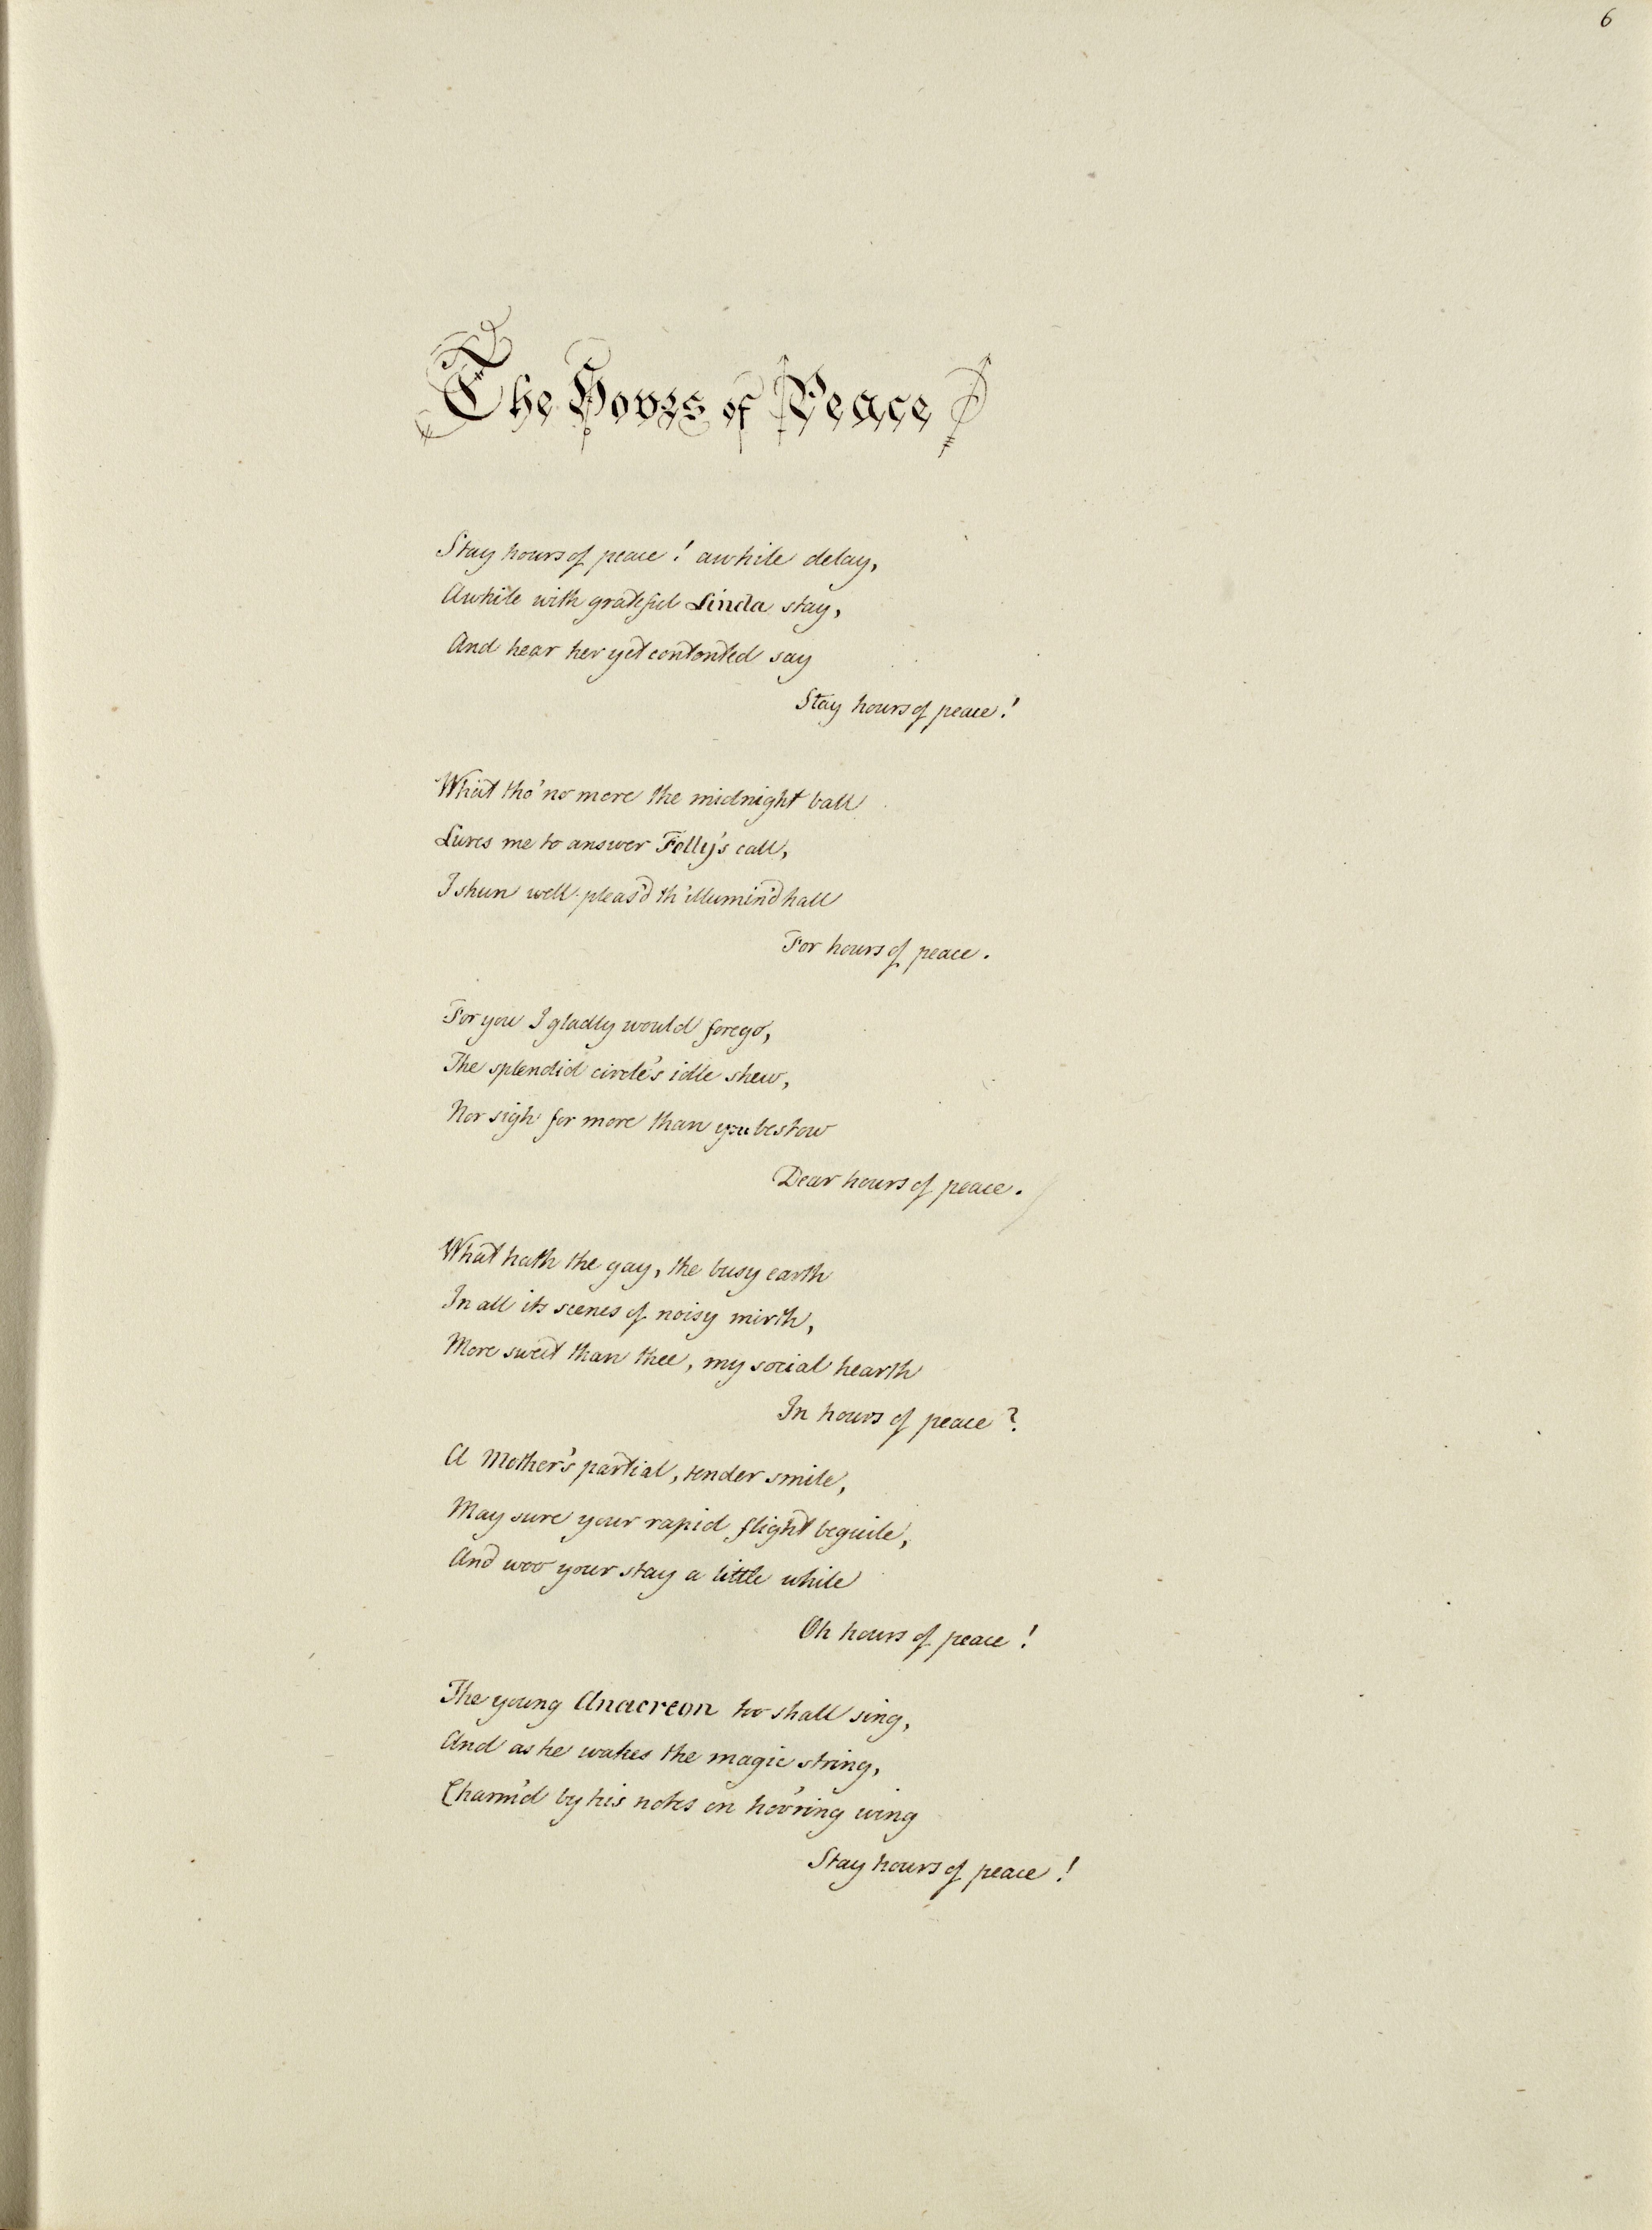 6
The Hours of Peace
Stay hours of peace! awhile delay,
Awhile with grateful Linda stay,
And hear her yet contented say
Stay hours of peace!
What tho' no more the midnight ball
Lures me to answer Folly's call,
I shun well pleas'd th'illumin'd hall
For hours of peace.
For you I gladly would forego,
The splendid circle's idle shew,
Nor sigh for more than you bestow
Dear hours of peace.
What hath the gay, the busy earth
In all its scenes of noisy mirth,
More sweet than thee, my social hearth
In hours of peace?
A Mother's partial, tender smile,
May sure your rapid flight beguile,
And woo your stay a little while
Oh hours of peace!
The young Anacreon too shall sing,
And as he wakes the magic string,
Charm'd by his notes on hov'ring wing
Stay hours of peace!